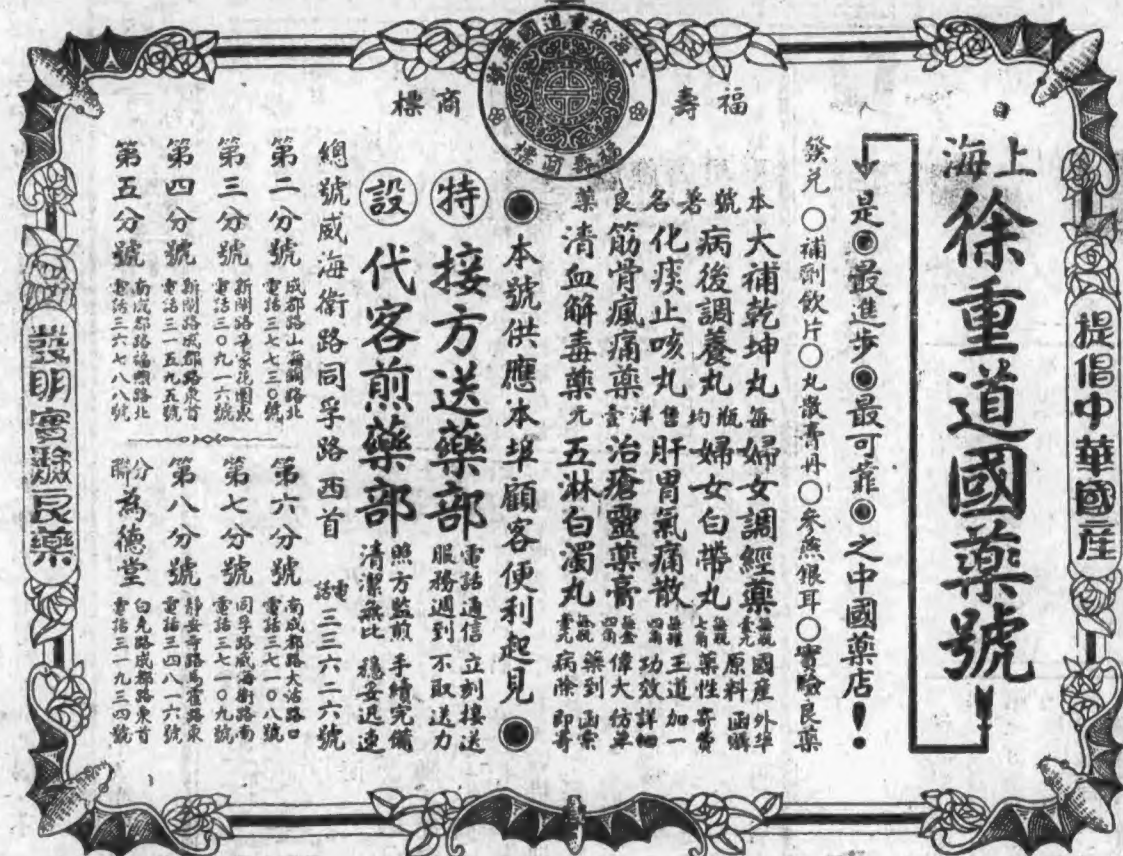 上海徐重道國藥號
福壽商標
福壽
商標
提倡中華國產
上海
徐重道國藥號！
是◉最進步◉最可靠◉之中國藥店！
發兌 ○補劑飲片○丸散膏丹○參燕銀耳○實驗良藥
本號著名良藥
大補乾坤丸 每
病後調養丸 瓶均
化痰止咳丸 售洋
筋骨瘋痛藥 壹
清血解毒藥 元
婦女調經藥
婦女白帶丸
肝胃氣痛散
治瘡靈藥膏
五淋白濁丸
國產原料
藥性王道
功效偉大
藥到病除
外埠函購
寄費加一
詳細仿單
函索即寄
◉本號供應本埠顧客便利起見◉
特設
接方送藥部
電話通信 立刻接送
服務週到 不取送力
代客煎藥部
照方監煎 手續完備
清潔無比 穩妥迅速
總號威海衛路同孚路西首 電話三三六二六號
第二分號 成都路山海關路北 電話三七七三〇號
第三分號 新閘路辛家花園東 電話三〇九一六號
第四分號 新閘路成都路東首 電話三一五九五號
第五分號 南成都路福煦路北 電話三六七八八號
第六分號 南成都路大沽路口 電話三七一〇八號
第七分號 同孚路威海衛路南 電話三七一〇九號
第八分號 靜安寺路馬霍路東 電話三四八一六號
分聯 為德堂 白克路成都路東首 電話三一九三四號
發明實驗良藥